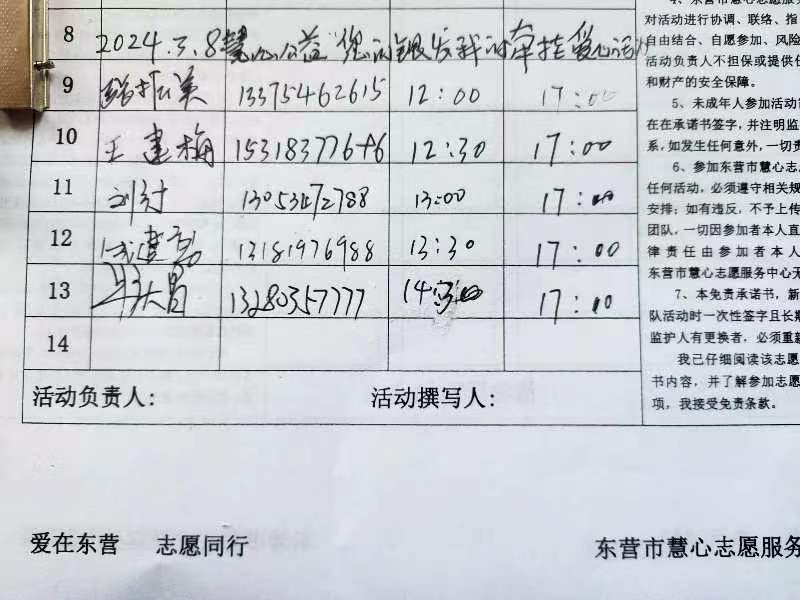 8 2024.3.8慧心公益"您的银发我的牵挂爱心活动
9 13375462615 12:00 17:00
10 王建梅 15318377646 12:30 17:00
11 刘付 13053472788 13:00 17:00
12 成建 13181976988 13:30 17:00
13 昌 13280357777 14:30 17:10
14
活动负责人: 活动撰写人:
4、东营市慧心志愿服
对活动进行协调、联络、指
自由结合、自愿参加、风险
活动负责人不担保或提供任
和财产的安全保障。
5、未成年人参加活动
在在承诺书签字，并注明监
系，如发生任何意外，一切责
6、参加东营市慧心志
任何活动，必须遵守相关规
安排；如有违反，不予上传
团队，一切因参加者本人直
律责任由参加者本人
东营市慧心志愿服务中心无
7、本免责承诺书，新
队活动时一次性签字且长期
监护人有更换者，必须重新
我已仔细阅读该志愿
书内容，并了解参加志愿
项，我接受免责条款。
爱在东营 志愿同行
东营市慧心志愿服务